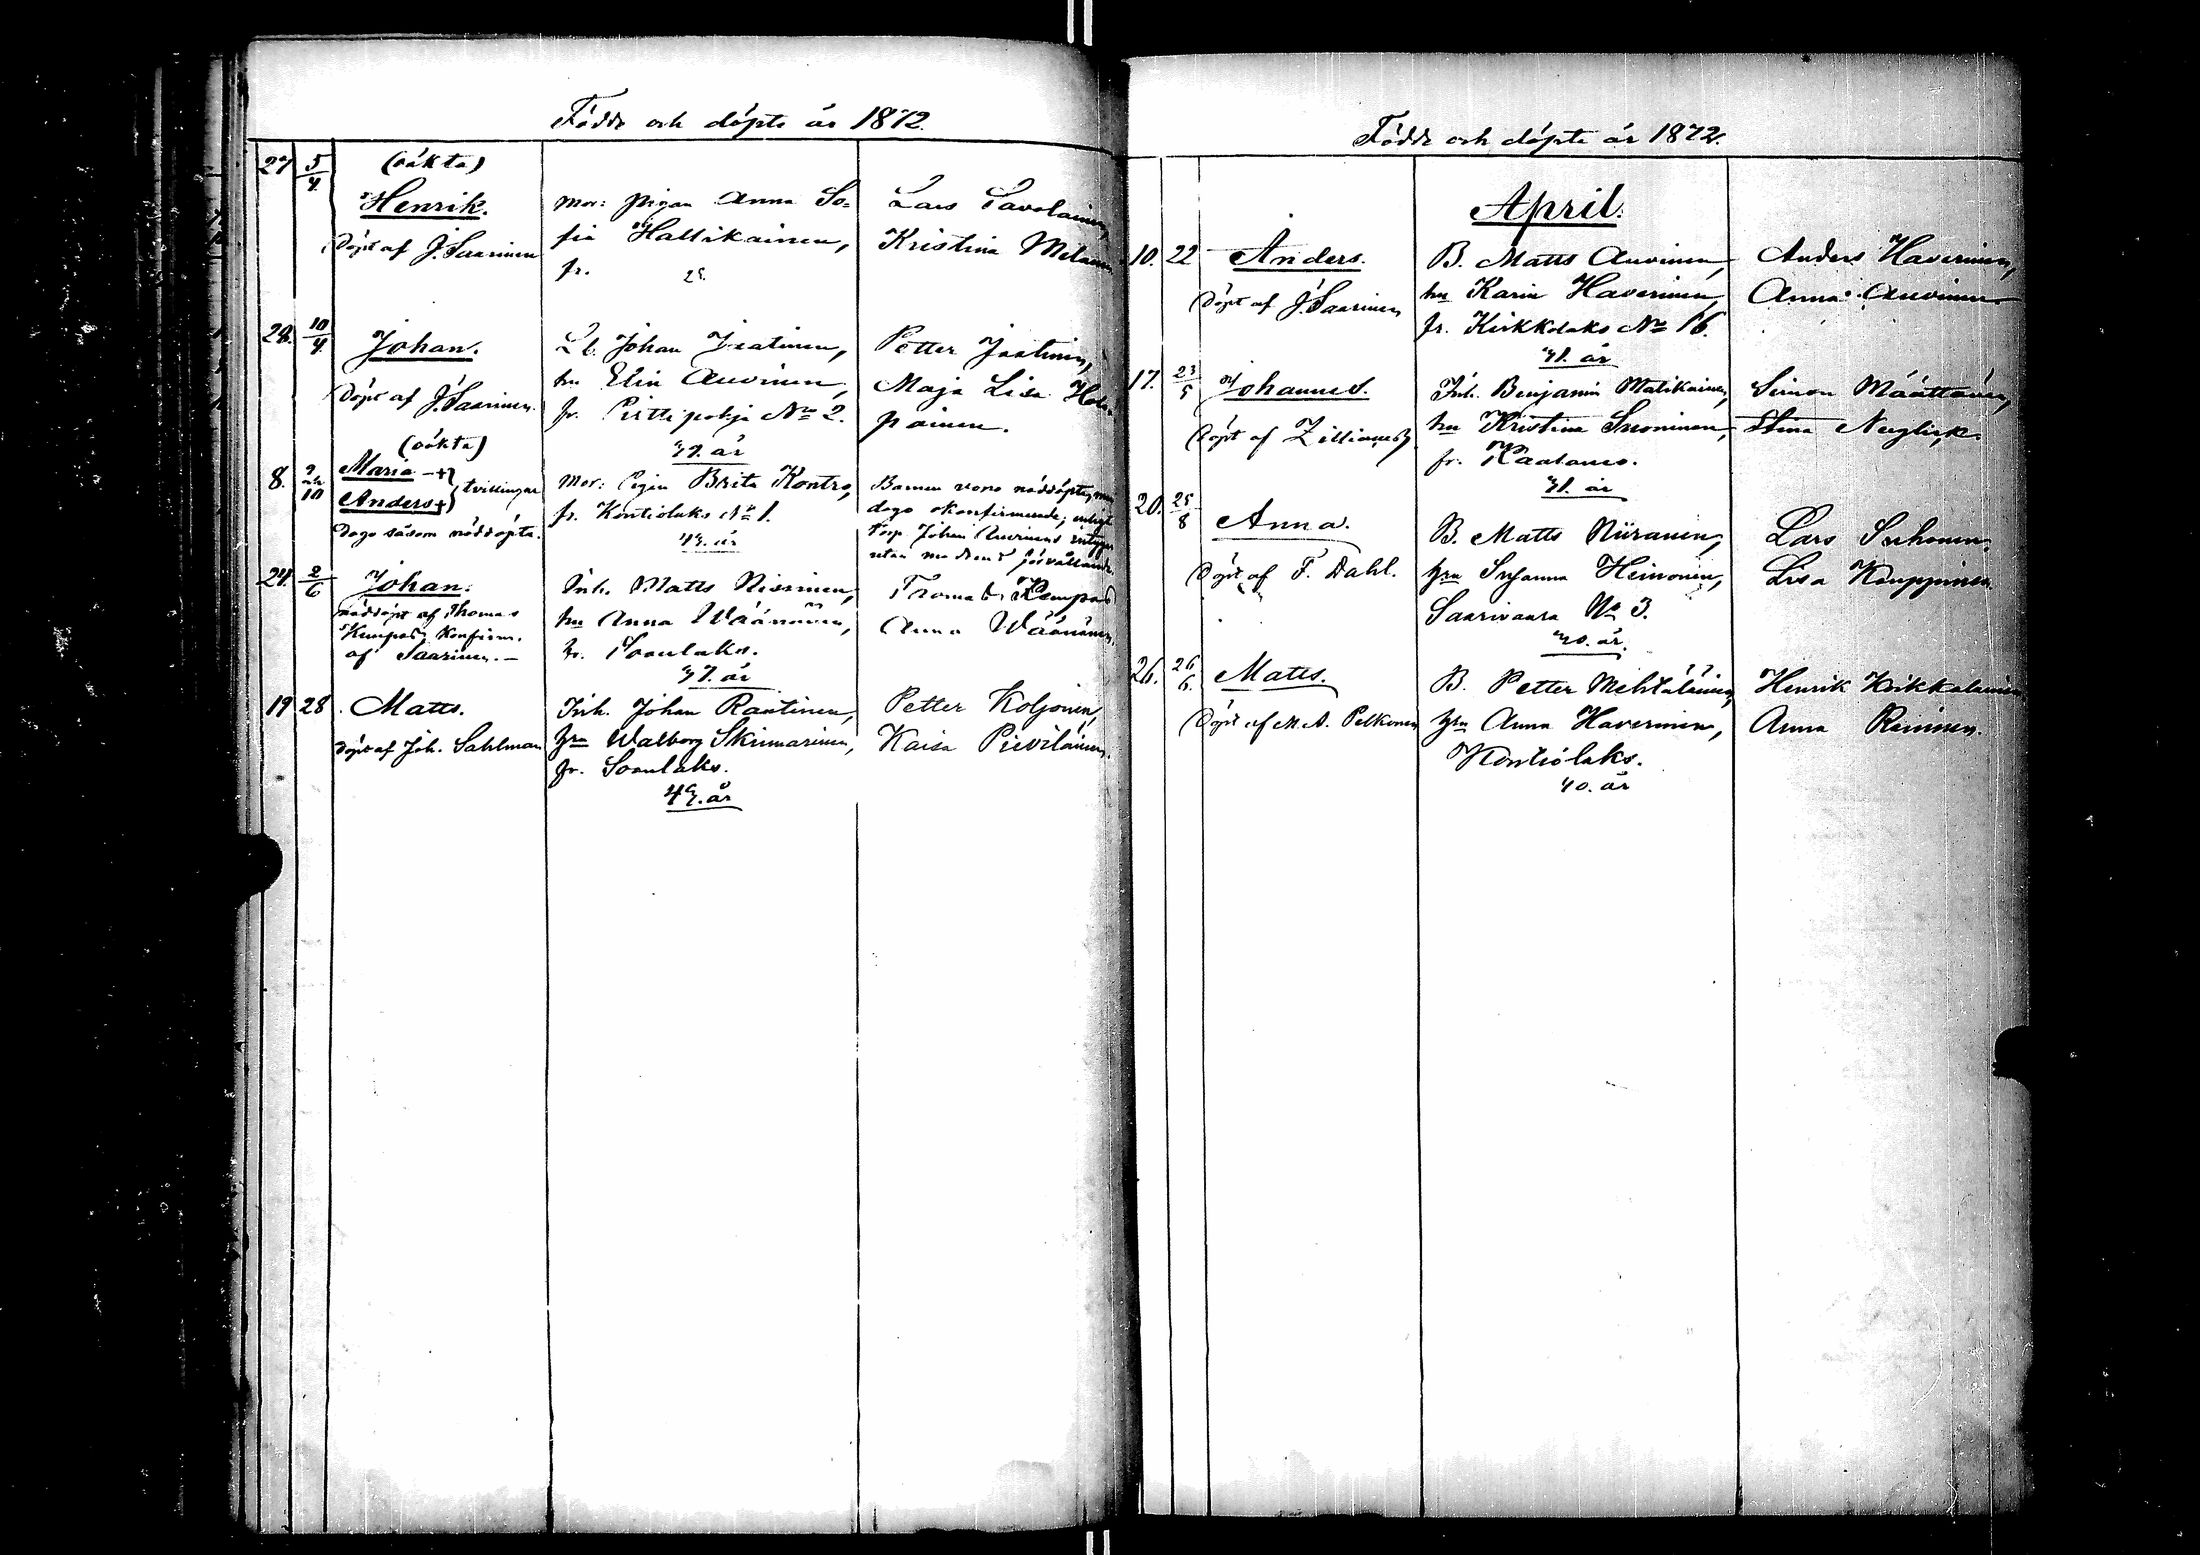 Födde och döpte år 1872.
27 5/4 (oäkta)
Henrik.
Döpt af J. Saarinen
mor: pigan Anna So=
fia Hallikainen,
fr. 25.
Lars Tavolainen,
Kristina
28. 10/4 Johan.
Döpt af J. Saarinen.
Lb. Johan Jaatinen,
hu Elin Auvinen,
fr. Pirttipohja No 2.
år
Petter Jaatinen,
Maja Lisa
painen.
(oäkta)
8. 9 och 10 Maria +
Anders + tvillingar
Dogo såsom nöddöpta.
Mor: Pigan Brita Kontro,
fr. Kontiolaks No 1.
43. år
Barnen voro nöddöpte, men
dogo okonfirmerade, enligt
Johan Auvinens intyg
utan moderns förvållande
24. 2/6 Johan.
nöddöpt af Thomas
Kempas, konfirm.
af Saarinen. —
Inh. Matts Nissinen,
hu Anna Wäänänen,
fr. Soanlaks.
37. år
Thomas Kempas
Anna Wäänänen.
19 28. Matts.
Döpt af Joh. Sahlman
Inh. Johan Rautinen,
hu Walborg Skinnarinen,
fr. Soanlaks.
43. år
Petter Koljonen,
Kaisa Pieviläinen.
Födde och döpte år 1872.
April.
10. 22 Anders.
Döpt af J. Saarinen
B. Matts Auvinen,
hu Karin Haverinen,
fr. Kirkkolaks No 16.
31. år
Anders Haverinen,
Anna Auvinen
17. 23/5 Johannes.
Döpt af Zilliacus
Inh. Benjamin Matikainen,
hu Kristina Simoninen,
fr. Kaatamo.
31. år
Simon Määttänen,
Stina Nyglick.
20. 25/8 Anna.
Döpt af F. Dahl.
B. Matts Niiranen,
hu Susanna Heinonen,
Saarivaara No 3.
30. år.
Lars Suhonen.
Lisa Kauppinen.
26. 26/6. Matts.
Döpt af M. A. Pelkonen
B. Petter Mehtäläinen,
hu Anna Haverinen,
Kontiolaks.
40. år
Henrik Kirkkolainen
Anna Riminen.